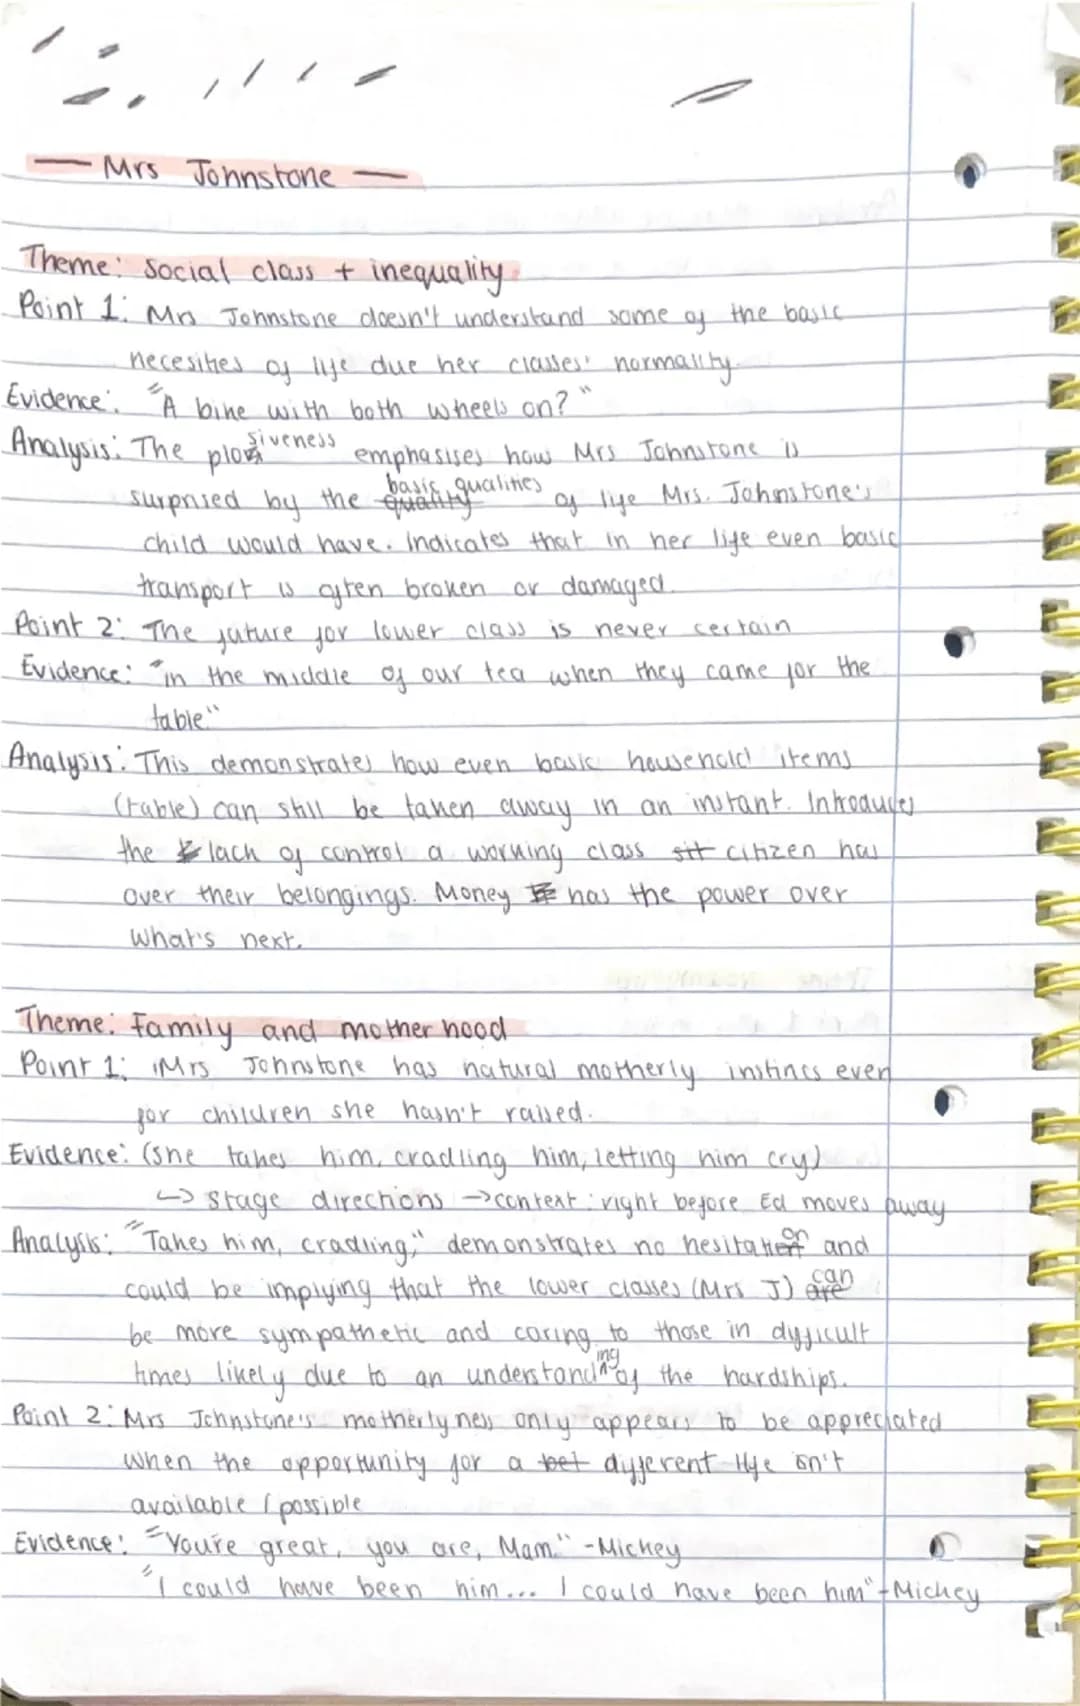 — Mrs Johnstone —
Theme: Social class + inequality.
Point 1: Mrs Johnstone doesn't understand some of the basic
necesities of life due her classes' normality.
Evidence: "A bike with both wheels on?"
Analysis: The plosiveness emphasises how Mrs Johnstone is
surprised by the basic qualities of life Mrs. Johnstone's
child would have. Indicates that in her life even basic
transport is often broken or damaged.
Point 2: The future for lower class is never certain
Evidence: "in the middle of our tea when they came for the
table"
Analysis: This demonstrates how even basic household items
(table) can still be taken away in an instant. Introduces
the lack of control a working class citizen has
over their belongings. Money has the power over
what's next.
Theme: Family and motherhood
Point 1: Mrs Johnstone has natural motherly instincs even
for children she hasn't raised.
Evidence: (she takes him, cradling him, letting him cry)
↳ Stage directions → context: right before Ed moves away
Analysis: "Takes him, cradling," demonstrates no hesitation and
could be implying that the lower classes (Mrs J) can
be more sympathetic and caring to those in difficult
times likely due to an understanding of the hardships.
Point 2: Mrs Johnstone's motherlyness only appears to be appreciated
when the opportunity for a different life isn't
available / possible
Evidence: "You're great, you are, Mam." - Mickey
"I could have been him... I could have been him" - Mickey